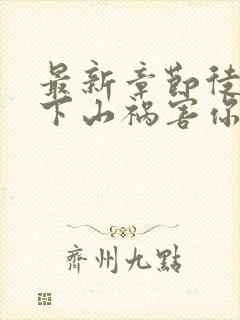 最新章節徒
下山禍害你
齊州九點